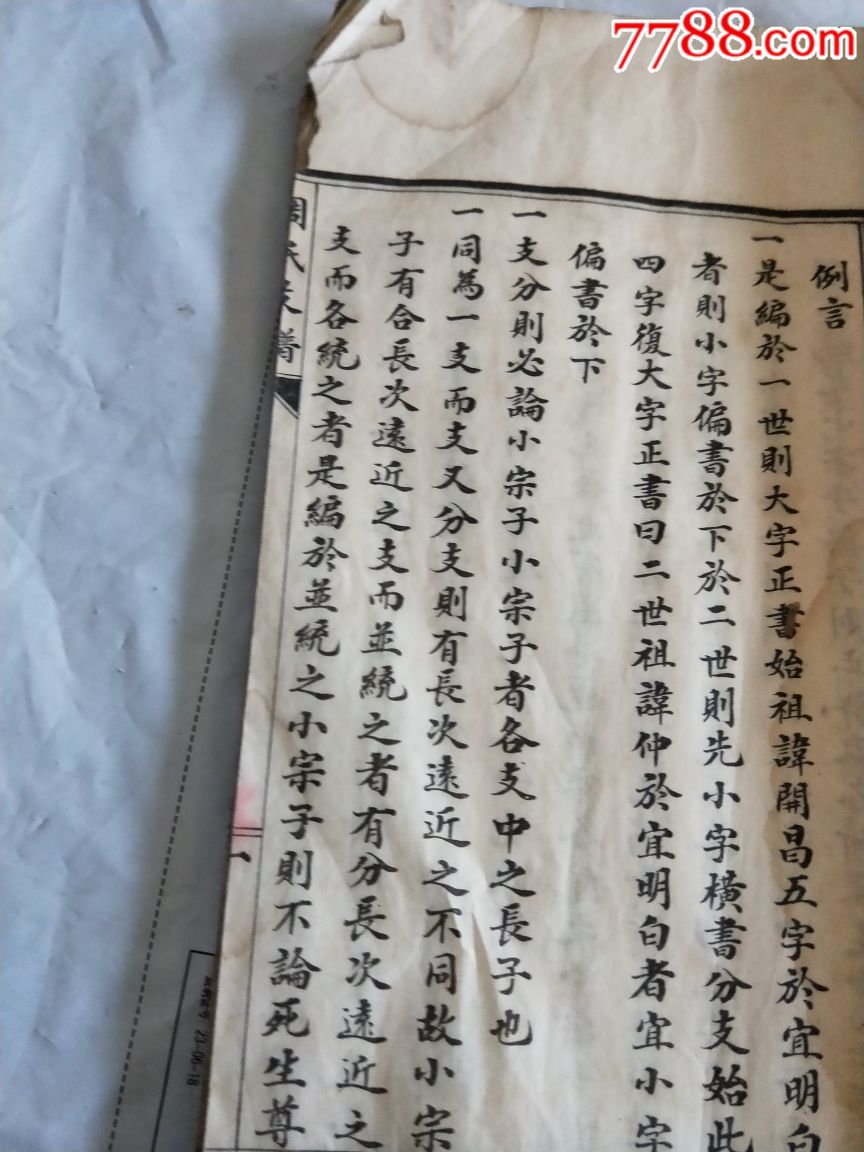 7788.com
例言
一是編於一世則大字正書始祖諱開昌五字於宜明白
者則小字偏書於下於二世則先小字橫書分支始此
四字復大字正書曰二世祖諱仲於宜明白者宜小字
偏書於下
一支分則必論小宗子小宗子者各支中之長子也
一同為一支而支又分支則有長次遠近之不同故小宗
子有合長次遠近之支而並統之者有分長次遠近之
支而各統之者是編於並統之小宗子則不論死生尊
周氏支譜
一
23-06-18